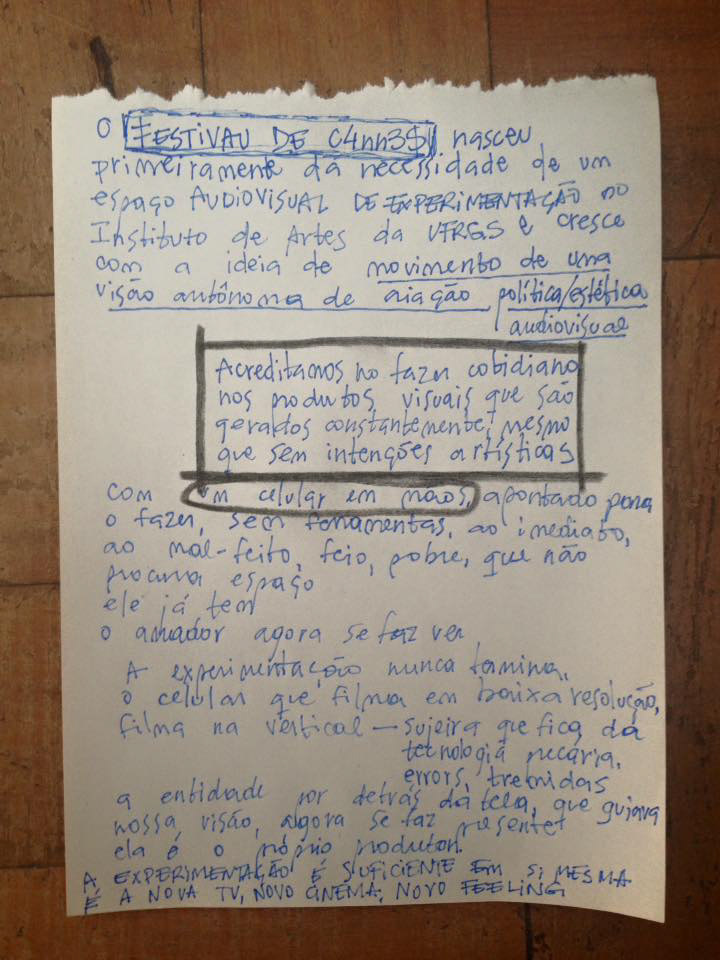 O FESTIVAU DE C4nn3$ nasceu
primeiramente da necessidade de um
espaço AUDIOVISUAL DE EXPERIMENTAÇÃO no
Instituto de Artes da UFRGS e cresce
com a ideia de movimento de uma
visão autônoma de criação política/estética
audiovisual
Acreditamos no fazer cotidiano
nos produtos visuais que são
gerados constantemente, mesmo
que sem intenções artísticas
com um celular em mãos, apontado para
o fazer, sem ferramentas, ao imediato,
ao mal-feito, feio, pobre, que não
procura espaço
ele já tem
o amador agora se faz ver
A experimentação nunca termina.
o celular que filma em baixa resolução,
filma na vertical — sujeira que fica da
tecnologia precária.
errors, tremidas
a entidade por detrás da tela, que guiava
nossa visão, agora se faz presente
ela é o próprio produtor.
A EXPERIMENTAÇÃO É SUFICIENTE EM SI MESMA
É A NOVA TV, NOVO CINEMA, NOVO FEELING